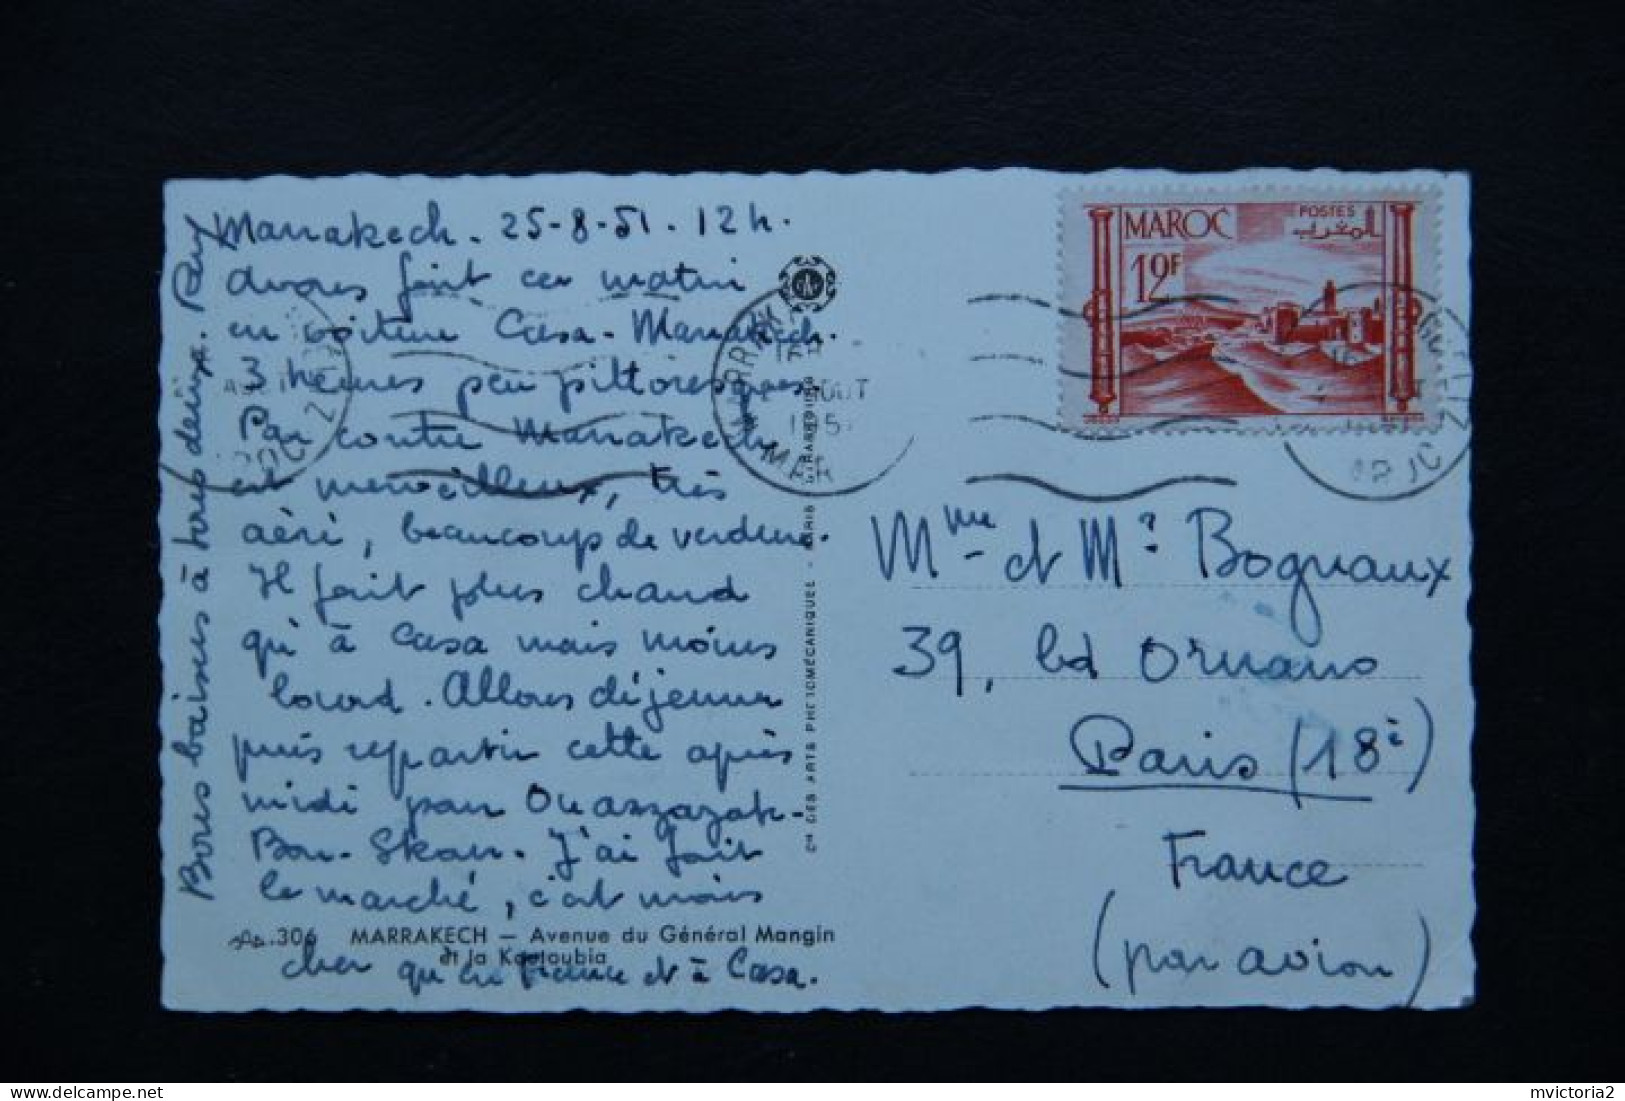 Marrakech. 25-8-51. 12h.
Avons fait ce matin
en voiture Casa-Marrakech.
3 heures peu pittoresques.
Par contre Marrakech
est merveilleux, très
aéré, beaucoup de verdure.
Il fait plus chaud
qu'à Casa mais moins
lourd. Allons déjeuner
puis repartir cette après
midi pour Ouazzazat-
Bou-Skour. J'ai fait
le marché, c'est moins
cher qu'en France et à Casa.
Bons baisers à tous deux.
306 MARRAKECH — Avenue du Général Mangin
et la Koutoubia
Cie DES ARTS PHOTOMÉCANIQUES - PARIS - STRASBOURG
MAROC
POSTES
المغرب
12F
MARRAKECH
MAR
AOUT
Mme et Mr Bognaux
39, bd Ornano
Paris (18è)
France
(par avion)
mvictoria2